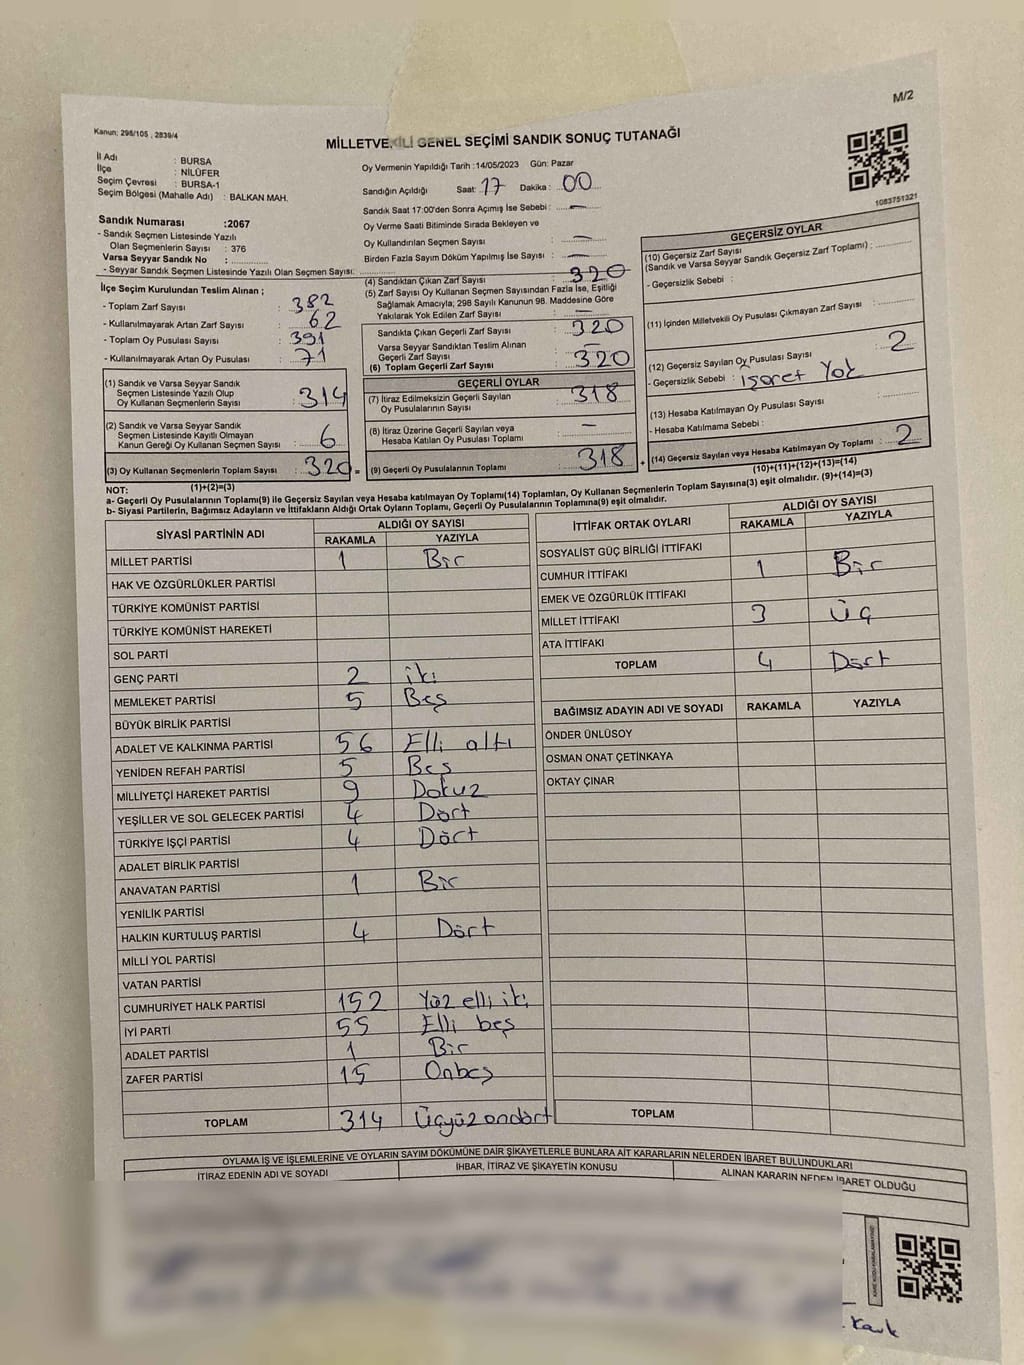 M/2
Kanun: 298/105 , 2839/4
MİLLETVEKİLİ GENEL SEÇİMİ SANDIK SONUÇ TUTANAĞI
İl Adı : BURSA
İlçe : NİLÜFER
Seçim Çevresi : BURSA-1
Seçim Bölgesi (Mahalle Adı) : BALKAN MAH.
Sandık Numarası :2067
- Sandık Seçmen Listesinde Yazılı
Olan Seçmenlerin Sayısı : 376
Varsa Seyyar Sandık No :
- Seyyar Sandık Seçmen Listesinde Yazılı Olan Seçmen Sayısı:
Oy Vermenin Yapıldığı Tarih :14/05/2023 Gün: Pazar
Sandığın Açıldığı Saat: 17 Dakika : 00
Sandık Saat 17:00'den Sonra Açımış İse Sebebi : —
Oy Verme Saati Bitiminde Sırada Bekleyen ve
Oy Kullandırılan Seçmen Sayısı : —
Birden Fazla Sayım Döküm Yapılmış İse Sayısı : —
1083751321
İlçe Seçim Kurulundan Teslim Alınan ;
- Toplam Zarf Sayısı : 382
- Kullanılmayarak Artan Zarf Sayısı : 62
- Toplam Oy Pusulası Sayısı : 391
- Kullanılmayarak Artan Oy Pusulası : 71
(1) Sandık ve Varsa Seyyar Sandık
Seçmen Listesinde Yazılı Olup
Oy Kullanan Seçmenlerin Sayısı : 314
(2) Sandık ve Varsa Seyyar Sandık
Seçmen Listesinde Kayıtlı Olmayan
Kanun Gereği Oy Kullanan Seçmen Sayısı : 6
(3) Oy Kullanan Seçmenlerin Toplam Sayısı : 320
(1)+(2)=(3)
(4) Sandıktan Çıkan Zarf Sayısı : 320
(5) Zarf Sayısı Oy Kullanan Seçmen Sayısından Fazla İse, Eşitliği
Sağlamak Amacıyla; 298 Sayılı Kanunun 98. Maddesine Göre
Yakılarak Yok Edilen Zarf Sayısı : —
Sandıkta Çıkan Geçerli Zarf Sayısı : 320
Varsa Seyyar Sandıktan Teslim Alınan
Geçerli Zarf Sayısı : —
(6) Toplam Geçerli Zarf Sayısı : 320
GEÇERLİ OYLAR
(7) İtiraz Edilmeksizin Geçerli Sayılan
Oy Pusulalarının Sayısı : 318
(8) İtiraz Üzerine Geçerli Sayılan veya
Hesaba Katılan Oy Pusulası Toplamı : —
= (9) Geçerli Oy Pusulalarının Toplamı : 318
GEÇERSİZ OYLAR
(10) Geçersiz Zarf Sayısı
(Sandık ve Varsa Seyyar Sandık Geçersiz Zarf Toplamı) :
- Geçersizlik Sebebi :
(11) İçinden Milletvekili Oy Pusulası Çıkmayan Zarf Sayısı :
(12) Geçersiz Sayılan Oy Pusulası Sayısı : 2
- Geçersizlik Sebebi : işaret Yok
(13) Hesaba Katılmayan Oy Pusulası Sayısı :
- Hesaba Katılmama Sebebi :
+ (14) Geçersiz Sayılan veya Hesaba Katılmayan Oy Toplamı : 2
(10)+(11)+(12)+(13)=(14)
NOT:
a- Geçerli Oy Pusulalarının Toplamı(9) ile Geçersiz Sayılan veya Hesaba katılmayan Oy Toplamı(14) Toplamları, Oy Kullanan Seçmenlerin Toplam Sayısına(3) eşit olmalıdır. (9)+(14)=(3)
b- Siyasi Partilerin, Bağımsız Adayların ve İttifakların Aldığı Ortak Oyların Toplamı, Geçerli Oy Pusulalarının Toplamına(9) eşit olmalıdır.
SİYASİ PARTİNİN ADI ALDIĞI OY SAYISI
RAKAMLA YAZIYLA
MİLLET PARTİSİ 1 Bir
HAK VE ÖZGÜRLÜKLER PARTİSİ
TÜRKİYE KOMÜNİST PARTİSİ
TÜRKİYE KOMÜNİST HAREKETİ
SOL PARTİ
GENÇ PARTİ 2 iki
MEMLEKET PARTİSİ 5 Beş
BÜYÜK BİRLİK PARTİSİ
ADALET VE KALKINMA PARTİSİ 56 Elli altı
YENİDEN REFAH PARTİSİ 5 Beş
MİLLİYETÇİ HAREKET PARTİSİ 9 Dokuz
YEŞİLLER VE SOL GELECEK PARTİSİ 4 Dört
TÜRKİYE İŞÇİ PARTİSİ 4 Dört
ADALET BİRLİK PARTİSİ
ANAVATAN PARTİSİ 1 Bir
YENİLİK PARTİSİ
HALKIN KURTULUŞ PARTİSİ 4 Dört
MİLLİ YOL PARTİSİ
VATAN PARTİSİ
CUMHURİYET HALK PARTİSİ 152 Yüz elli iki
İYİ PARTİ 55 Elli beş
ADALET PARTİSİ 1 Bir
ZAFER PARTİSİ 15 Onbeş
TOPLAM 314 Üçyüzondört
İTTİFAK ORTAK OYLARI ALDIĞI OY SAYISI
RAKAMLA YAZIYLA
SOSYALİST GÜÇ BİRLİĞİ İTTİFAKI
CUMHUR İTTİFAKI 1 Bir
EMEK VE ÖZGÜRLÜK İTTİFAKI
MİLLET İTTİFAKI 3 Üç
ATA İTTİFAKI
TOPLAM 4 Dört
BAĞIMSIZ ADAYIN ADI VE SOYADI RAKAMLA YAZIYLA
ÖNDER ÜNLÜSOY
OSMAN ONAT ÇETİNKAYA
OKTAY ÇINAR
TOPLAM
OYLAMA İŞ VE İŞLEMLERİNE VE OYLARIN SAYIM DÖKÜMÜNE DAİR ŞİKAYETLERLE BUNLARA AİT KARARLARIN NELERDEN İBARET BULUNDUKLARI
İTİRAZ EDENİN ADI VE SOYADI İHBAR, İTİRAZ VE ŞİKAYETİN KONUSU ALINAN KARARIN NEDEN İBARET OLDUĞU